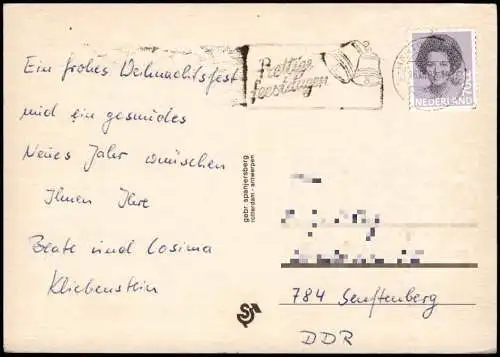 Ein frohes Weihnachtsfest
und ein gesundes
Neues Jahr wünschen
Ihnen Ihre
Beate und Cosima
Kliebenstein
Prettige
feestdagen
NEDERLAND
70c
gebr. spanjersberg
rotterdam - antwerpen
784 Senftenberg
DDR